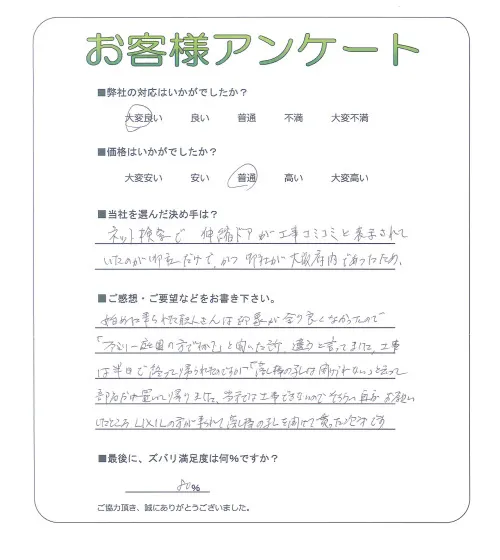 お客様アンケート
■弊社の対応はいかがでしたか？
大変良い 良い 普通 不満 大変不満
■価格はいかがでしたか？
大変安い 安い 普通 高い 大変高い
■当社を選んだ決め手は？
ネット検索で 伸縮ドアが工事コミコミと表示されて
いたのが御社だけで、かつ 御社が大阪府内であったため。
■ご感想・ご要望などをお書き下さい。
始めに来られた職人さんは印象が余り良くなかったので
と聞いた所、違うと言ってました。工事
は半日で終って帰られたのですが「落し棒の孔は開けれない」と云って
部品だけ置いて帰りました。
したところLIXILの方が来られて落し棒の孔を開けて貰った次第です
■最後に、ズバリ満足度は何%ですか？
80%
ご協力頂き、誠にありがとうございました。